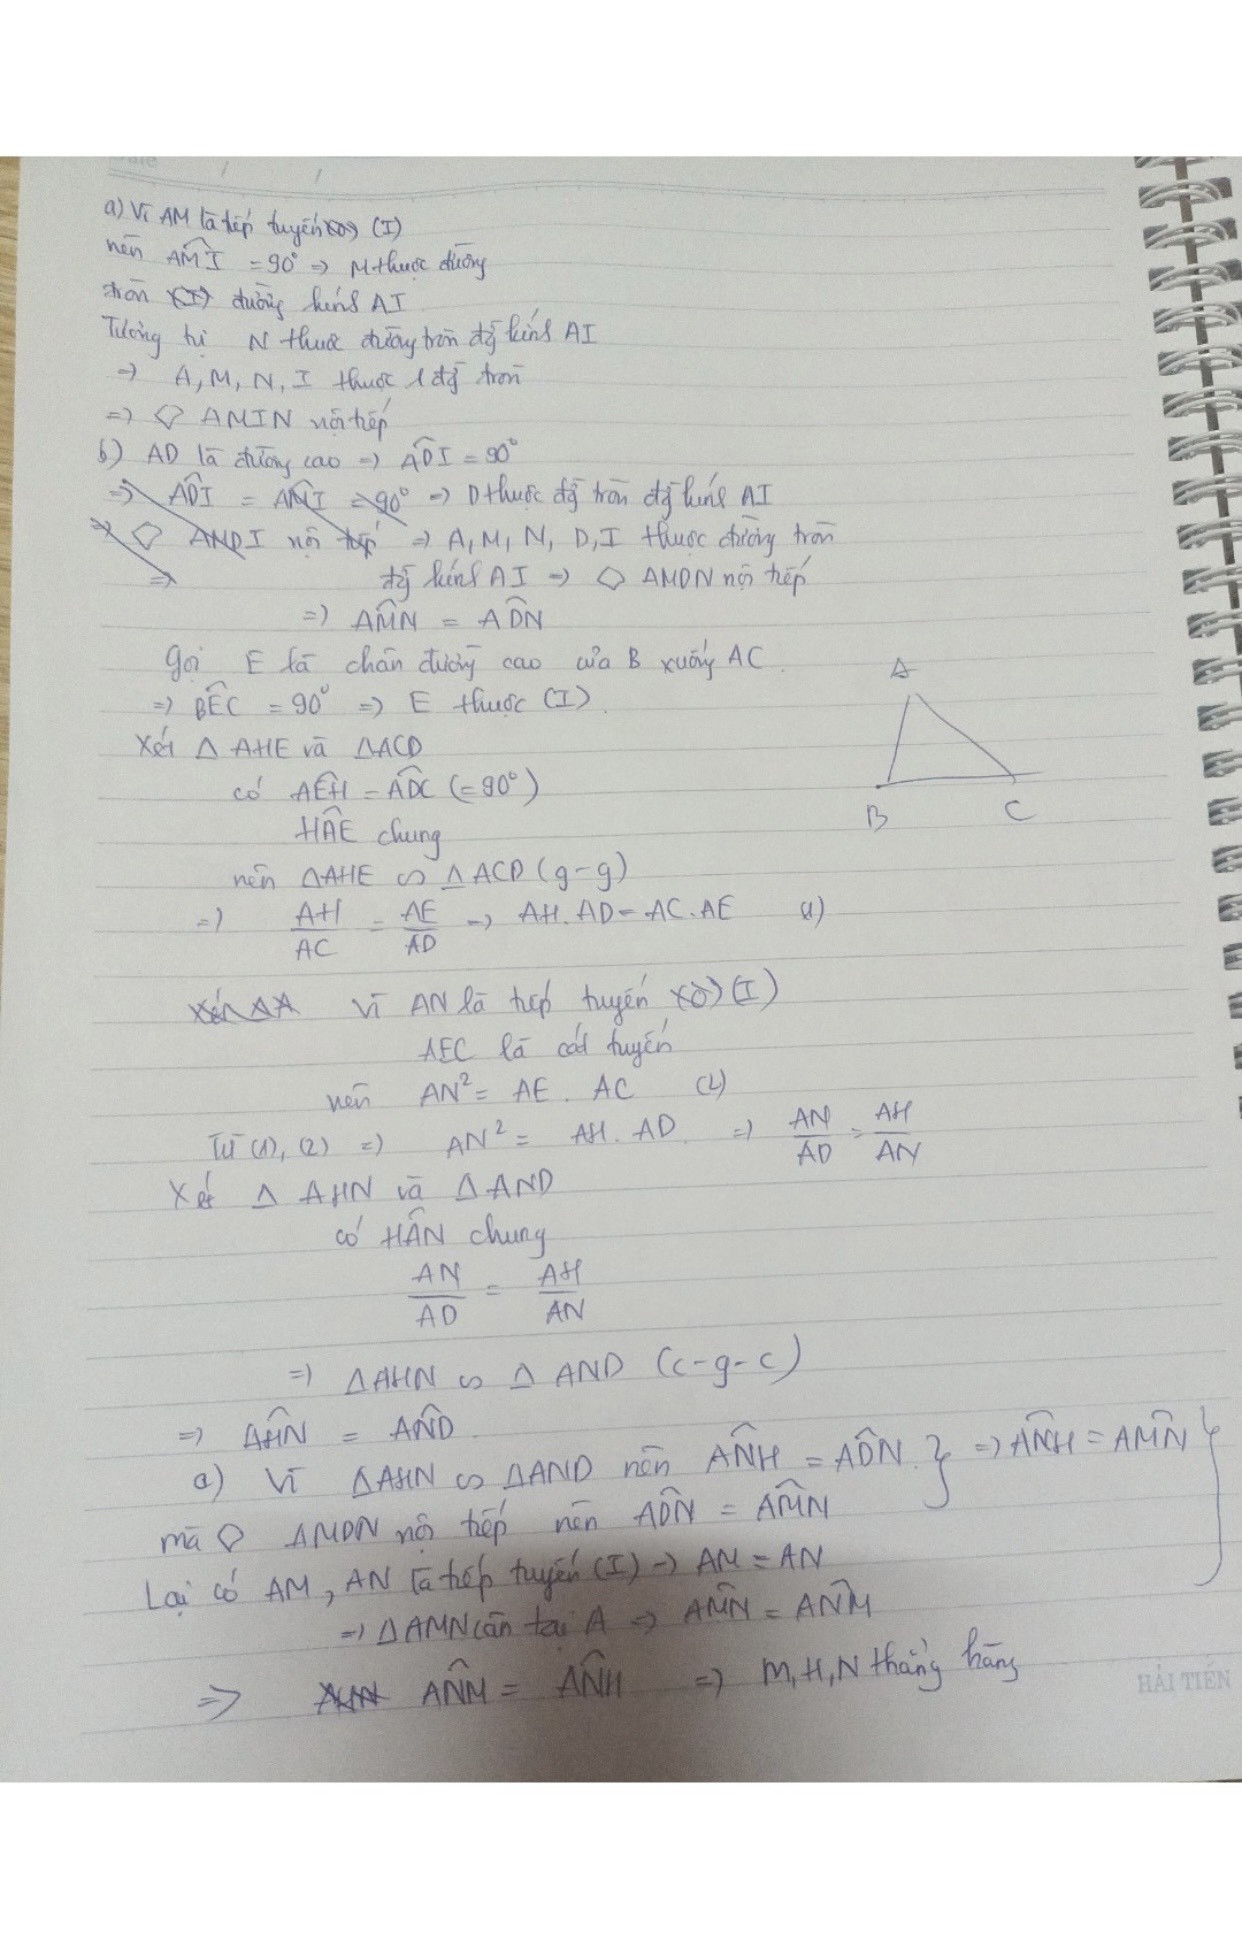 a) Vì AM là tiếp tuyến (I)
nên AMI = 90° => M thuộc đường
tròn (I) đường kính AI
Tương tự N thuộc đường tròn đg̃ kính AI
=> A, M, N, I thuộc 1 đg̃ tròn
=> ◇ AMIN nội tiếp
b) AD là đường cao => ADI = 90°
=> ADI = ANI = 90° => D thuộc đg̃ tròn đg̃ kính AI
=> ◇ ANDI nội tiếp => A, M, N, D, I thuộc đường tròn
=> đg̃ kính AI => ◇ AMDN nội tiếp
=> AMN = ADN
Gọi E là chân đường cao của B xuống AC.
=> BEC = 90° => E thuộc (I).
Xét Δ AHE và ΔACD
có AEH = ADC (= 90°)
HAE chung
nên ΔAHE ∽ ΔACD (g-g)
=> AH/AC = AE/AD => AH. AD = AC. AE (1)
Xét ΔA Vì AN là tiếp tuyến (I)
AEC là cát tuyến
nên AN² = AE. AC (2)
Từ (1), (2) => AN² = AH. AD. => AN/AD = AH/AN
Xét Δ AHN và ΔAND
có HAN chung
AN/AD = AH/AN
=> ΔAHN ∽ Δ AND (c-g-c)
=> AHN = AND.
c) Vì ΔAHN ∽ ΔAND nên ANH = ADN. } => ANH = AMN }
mà ◇ AMDN nội tiếp nên ADN = AMN
Lại có AM, AN là tiếp tuyến (I) => AM = AN
=> ΔAMN cân tại A => AMN = ANM
=> ANM = ANH => M, H, N thẳng hàng
A
B
C
HẢI TIẾN